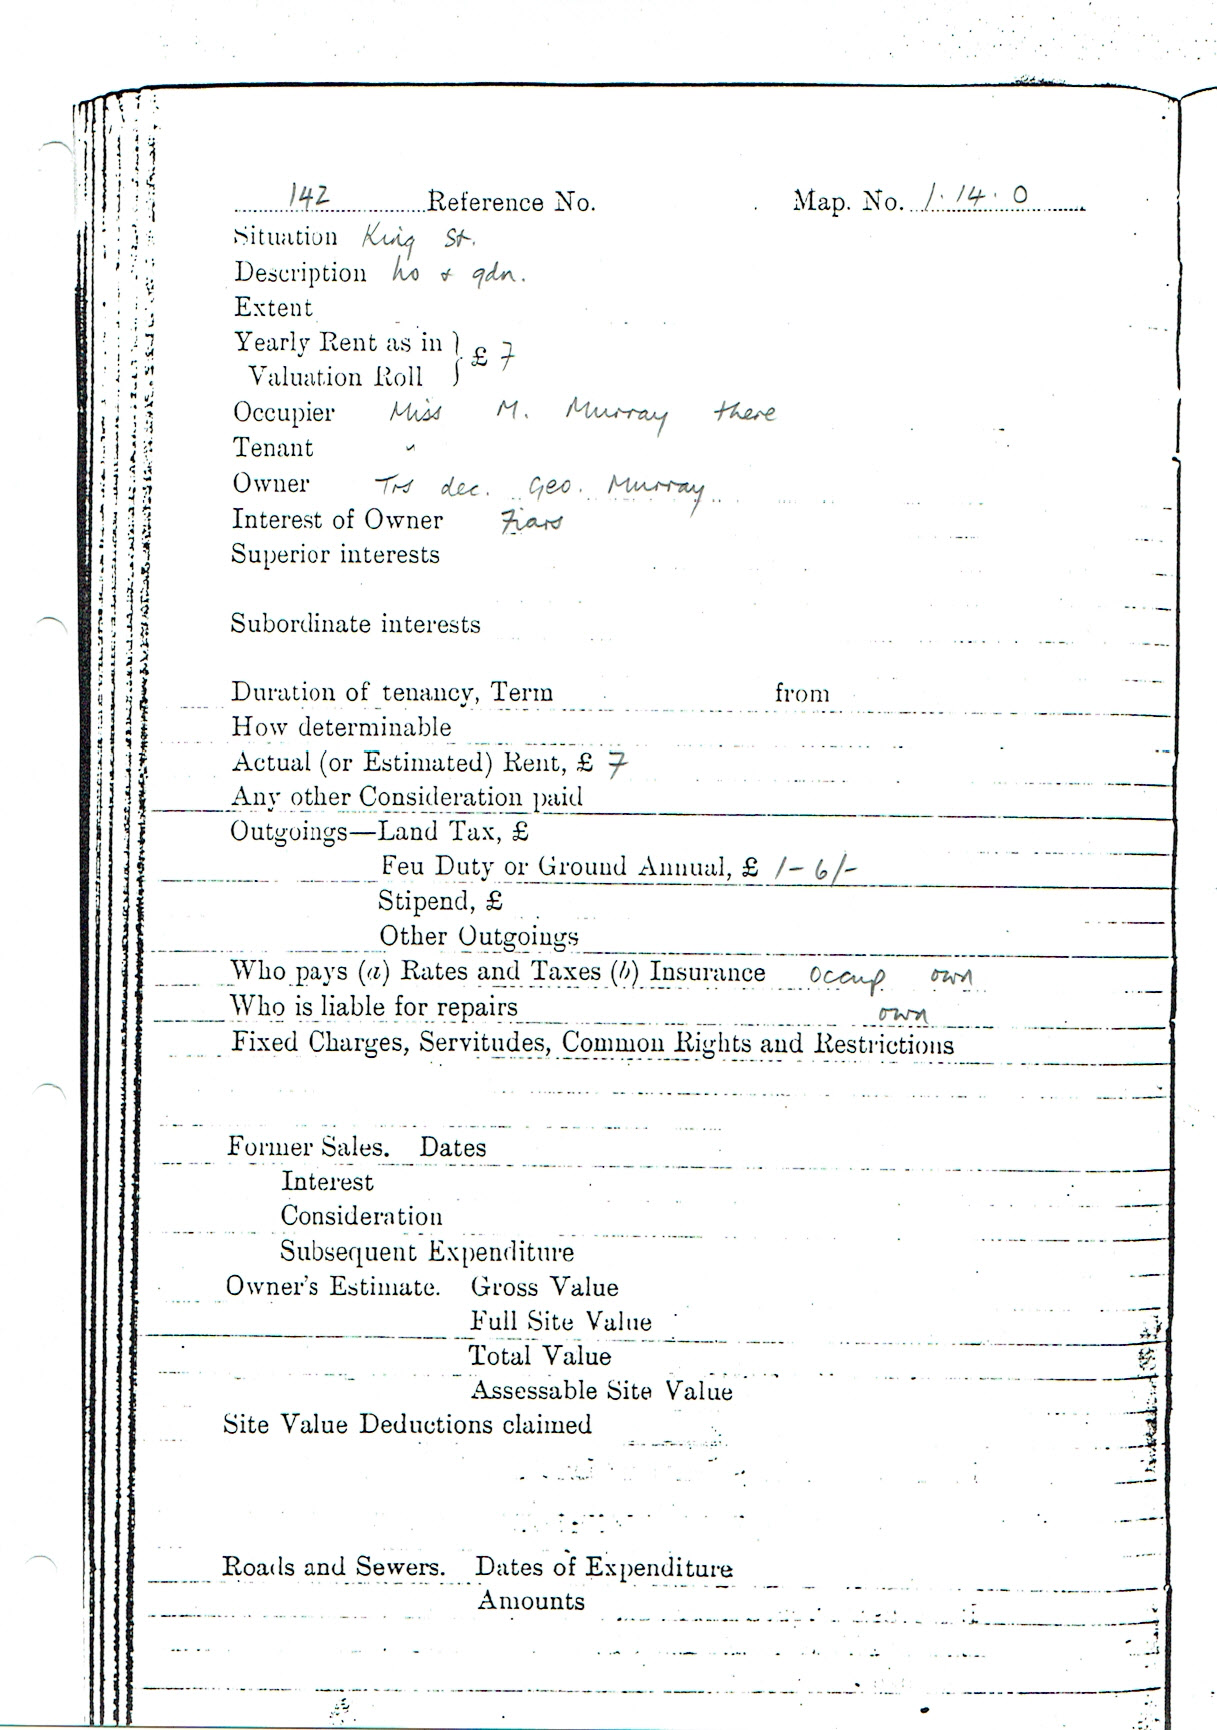 142 Reference No. Map. No. 1.14.0
Situation King St.
Description ho + gdn.
Extent
Yearly Rent as in
Valuation Roll } £ 7
Occupier Miss M. Murray there
Tenant "
Owner Trs dec. Geo. Murray
Interest of Owner Fiars
Superior interests
Subordinate interests
Duration of tenancy, Term from
How determinable
Actual (or Estimated) Rent, £ 7
Any other Consideration paid
Outgoings—Land Tax, £
Feu Duty or Ground Annual, £ 1-6/-
Stipend, £
Other Outgoings
Who pays (a) Rates and Taxes (b) Insurance occup own
Who is liable for repairs own
Fixed Charges, Servitudes, Common Rights and Restrictions
Former Sales. Dates
Interest
Consideration
Subsequent Expenditure
Owner's Estimate. Gross Value
Full Site Value
Total Value
Assessable Site Value
Site Value Deductions claimed
Roads and Sewers. Dates of Expenditure
Amounts